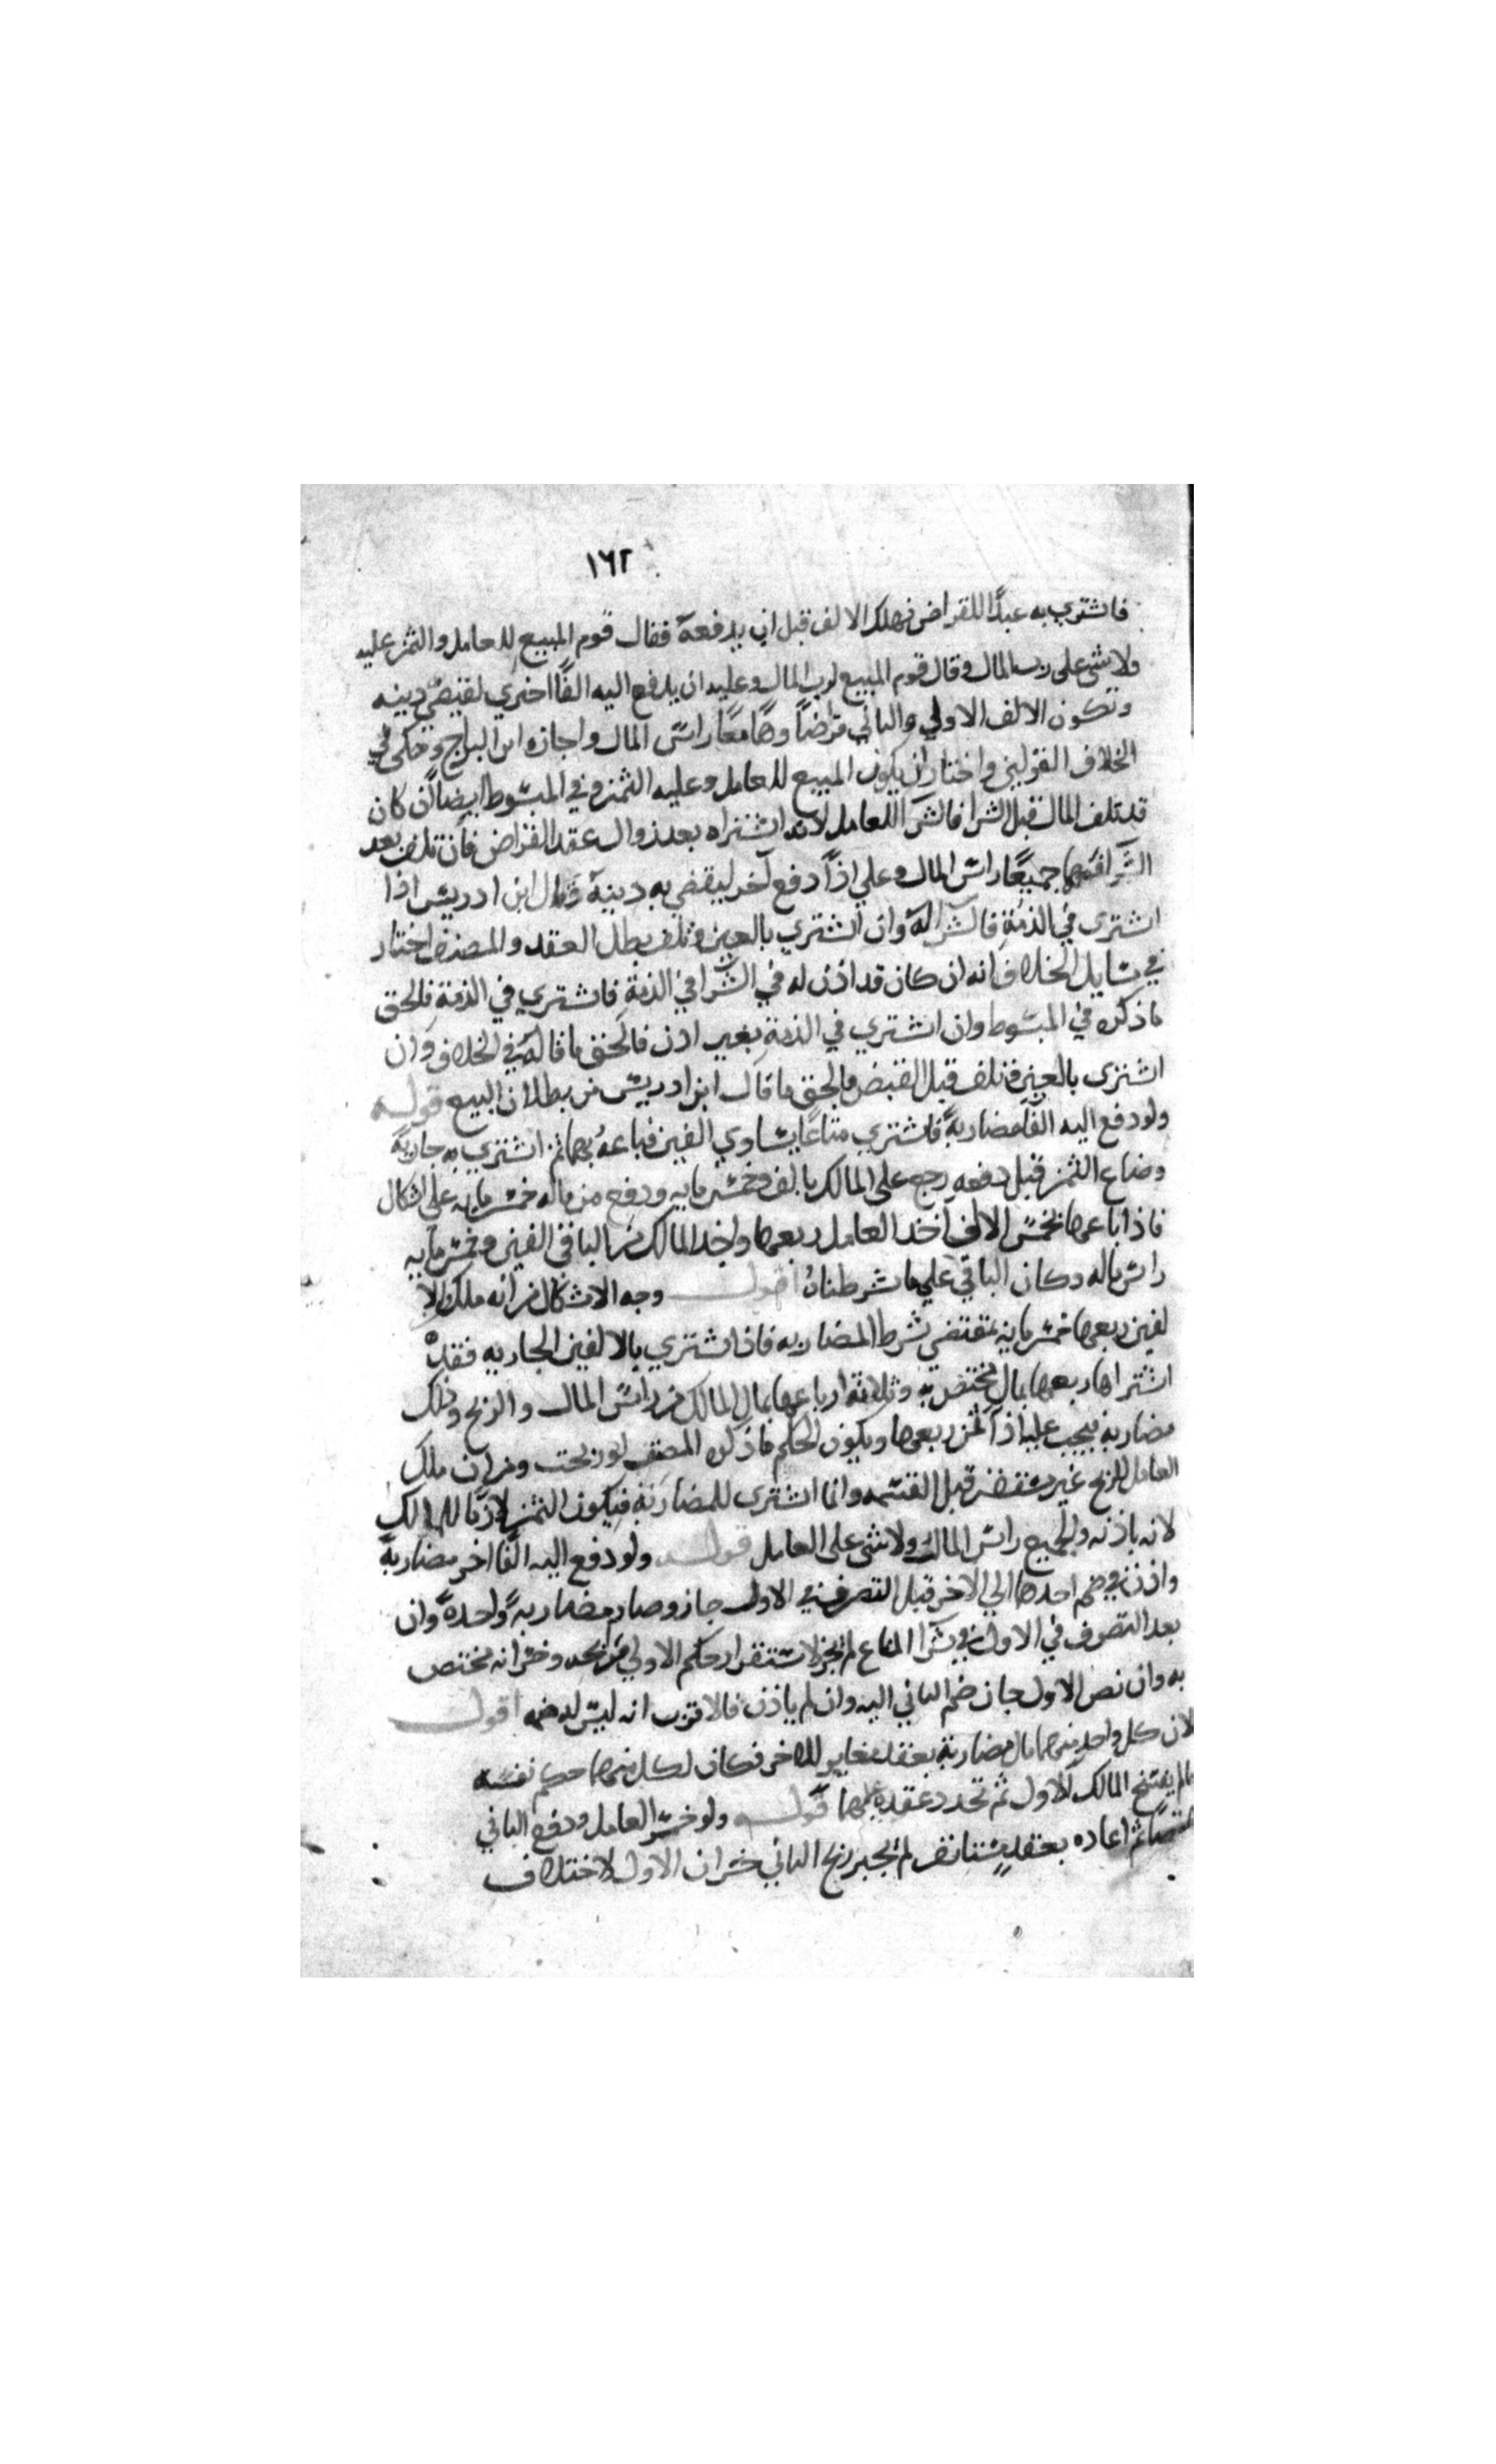 ١٦٢
فاشتري به عبدًا للقراض فهلك الالف قبل ان يدفعه فقال قوم المبيع للعامل والثمن عليه
ولا شي على رب المال وقال قوم المبيع لرب المال وعليه ان يدفع اليه الفًا اخري لقبض دينه
وتكون الالف الاولي والثاني قراضًا وهما معًا راس المال واجازه ابن البراج وحكى في
الخلاف القولين واختار ان يكون المبيع للعامل وعليه الثمن وفي المبسوط ايضا ان كان
قد تلف المال قبل الشرا فالشرا للعامل لانه اشتراه بعد زوال عقد القراض فان تلف بعد
الشرا فهما جميعًا راس المال وعلي اذًا دفع آخر ليقضي به دينه وقال ابن ادريس اذا
اشترى في الذمة فالشرا له وان اشتري بالعين وتلف بطل العقد والمصنف اختار
في مسايل الخلاف انه ان كان قد اذن له في الشرا في الذمة فاشتري في الذمة فالحق
ما ذكره في المبسوط وان اشتري في الذمة بغير اذن فالحق ما قاله في الخلاف وان
اشترى بالعين فتلف قبل القبض فالحق ما قال ابن ادريس من بطلان البيع قوله
ولو دفع اليه الفًا مضاربةً فاشتري متاعًا يساوي الفين فباعه بهما ثم اشتري به جارية
وضاع الثمن قبل دفعه رجع على المالك بالف وخمس مايه ودفع من ماله خمس مايه على اشكال
فاذا باعها بخمسة الاف اخذ العامل ربعها واخذ المالك من الباقي الفين وخمس مايه
راس ماله وكان الباقي علي ما شرطناه اقول وجه الاشكال من انه ملك الا
لفين ربعها خمس مايه بمقتضى شرط المضاربه فاذا اشتري بالالفين الجاريه فقد
اشتراها ربعها بمال مختص به وثلاثة ارباعها بمال المالك من راس المال والربح وذلك
مضاربه فيجب عليه اذًا ثمن ربعها ويكون الحكم ما ذكره المصنف لو ربحت ومن ان ملك
العامل للربح غير مستقر قبل القسمه وانما اشترى للمضاربة فيكون الثمن لازمًا للمالك
لانه باذنه والجميع راس المال ولا شي على العامل قوله ولو دفع اليه الفًا اخر مضاربةً
واذن في ضم احدهما الي الاخر قبل التصرف في الاول جاز وصار مضاربةً واحدةً وان
بعد التصرف في الاول في شرا المتاع لم يجز لاستقرار حكم الاولي فربحه وخسرانه مختص
به وان نض الاول جاز ضم الثاني اليه وان لم ياذن فالاقرب انه ليس له ضمه اقول
لان كل واحد منهما مال مضاربة بعقد مغاير للاخر فكان لكل منهما حكم نفسه
ما لم يفسخ المالك الاول ثم تجدد عقده عليهما قوله ولو خسر العامل ودفع الباقي
ثم اعاده بعقدٍ مستانف لم يجبر ربح الثاني خسران الاول لاختلاف